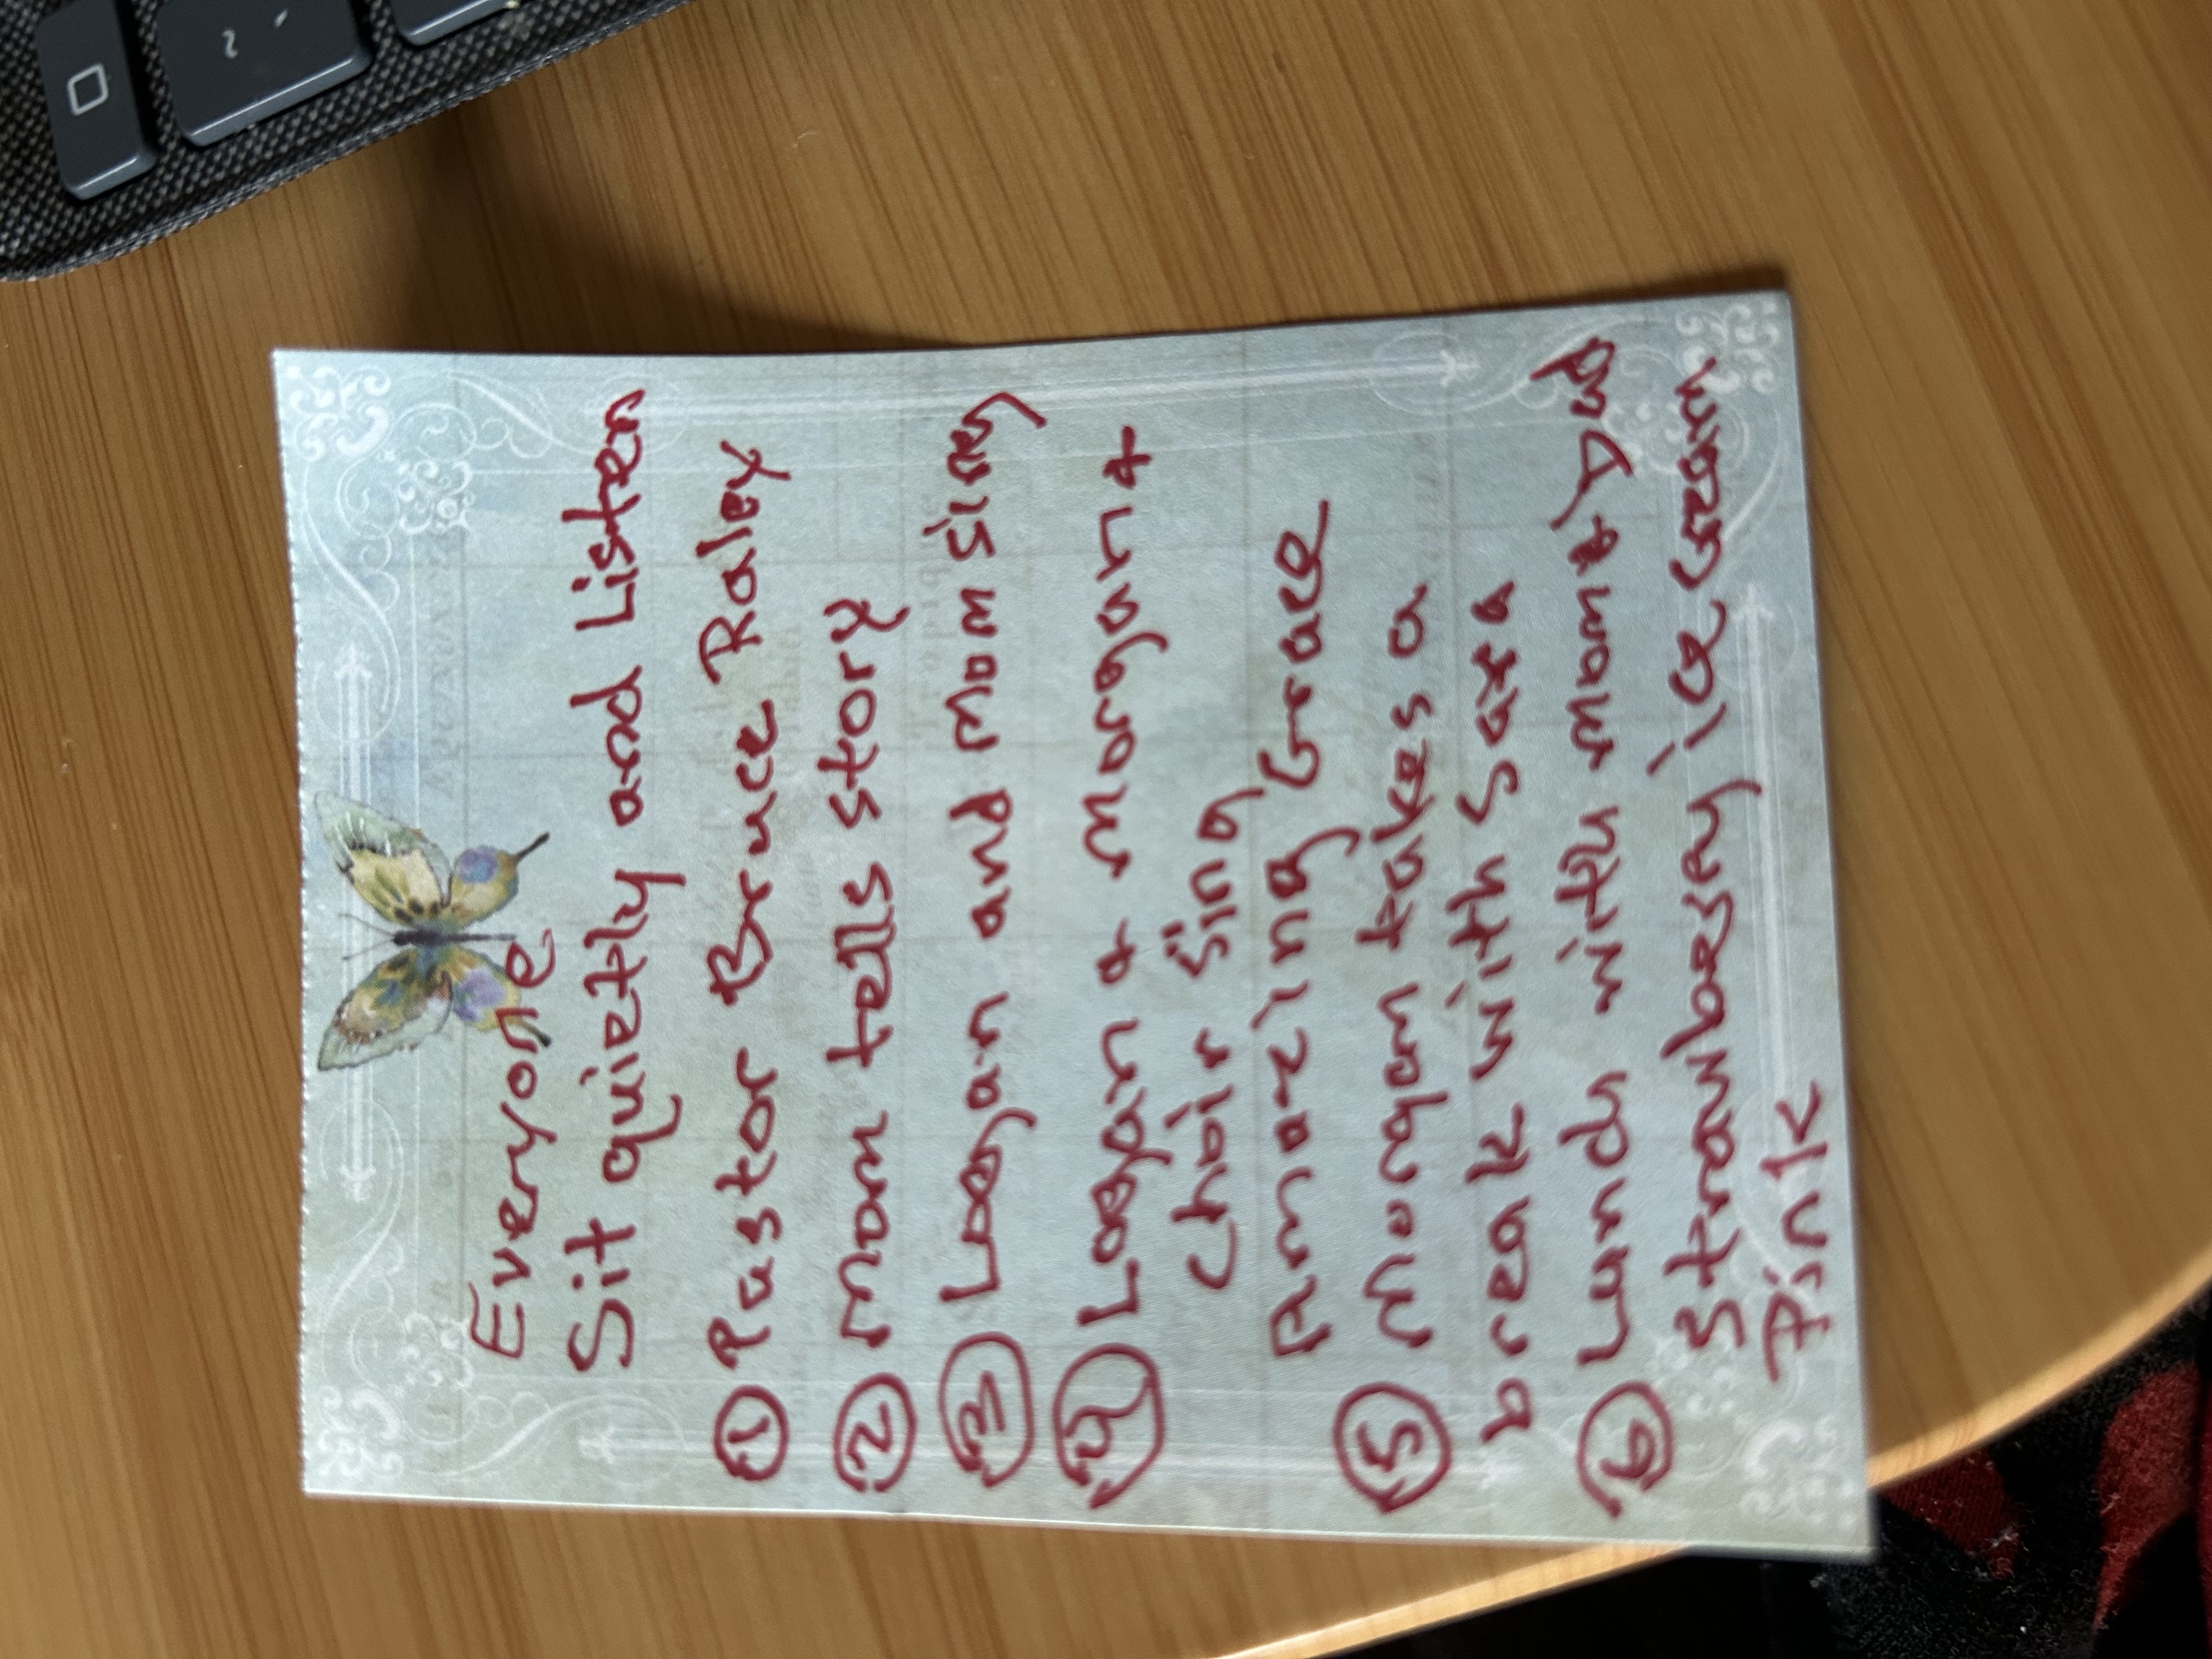 Everyone
Sit quietly and Listen
① Pastor Bruce Raley
② mom tells story
③ Logan and mom sing
④ Logan & Morgan &
Choir sing
Amazing Grace
⑤ Morgan takes a
break with Sara
⑥ Lunch with mom & Dad
Strawberry ice cream
Pink